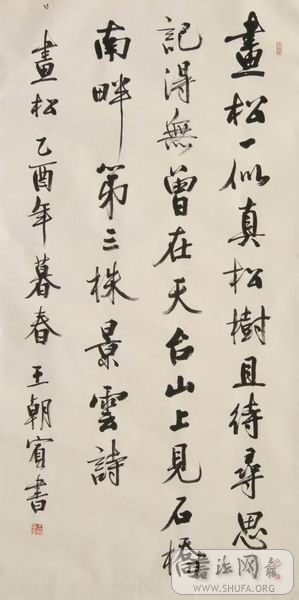 畫松一似真松樹且待尋思
記得無曾在天台山上見石橋
南畔第三株景雲詩
畫松乙酉年暮春王朝賓書
書法网
WWW.SHUFA.ORG